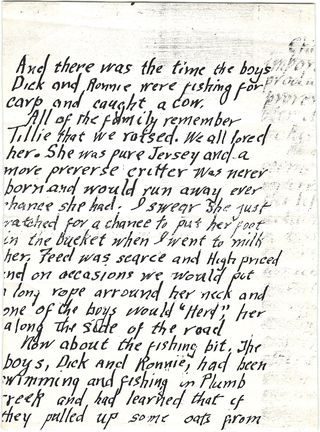 And there was the time the boys
Dick and Ronnie were fishing for
carp and caught a cow.
All of the family remember
Tillie that we raised. We all loved
her. She was pure Jersey and a
more preverse critter was never
born and would run away ever
hance she had. I swear She just
watched for a chance to put her foot
in the bucket when I went to milk
her. Feed was scarce and High priced
nd on occasions we would put
long rope arround her neck and
one of the boys would "Herd", her
along The side of the road
Now about the fishing bit. The
boys, Dick and Ronnie, had been
wimming and fishing in Plumb
reek and had learned that if
they pulled up some oats from